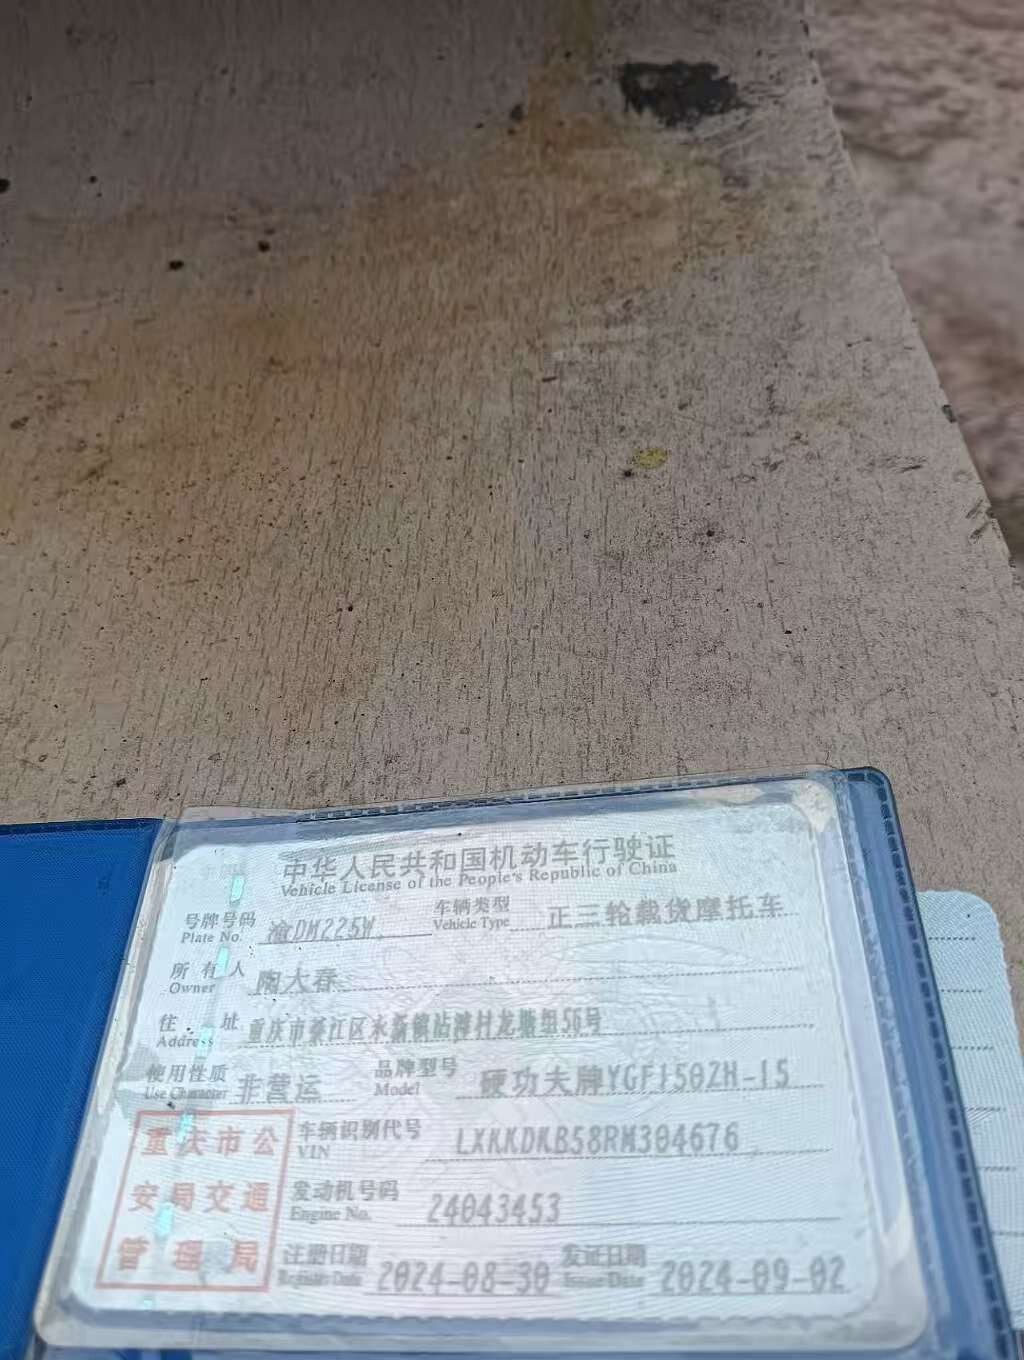 中华人民共和国机动车行驶证
Vehicle License of the People's Republic of China
号牌号码 渝DM225W 车辆类型 正三轮载货摩托车
Plate No. Vehicle Type
所有人 陶大春
Owner
住址 重庆市綦江区永新镇沾滩村龙塘组56号
Address
使用性质 非营运 品牌型号 硬功夫牌YGF150ZH-15
Use Character Model
重庆市公
安局交通
管理局
车辆识别代号 LXKKDKB58RM304676
VIN
发动机号码 24043453
Engine No.
注册日期 2024-08-30 发证日期 2024-09-02
Register Date Issue Date